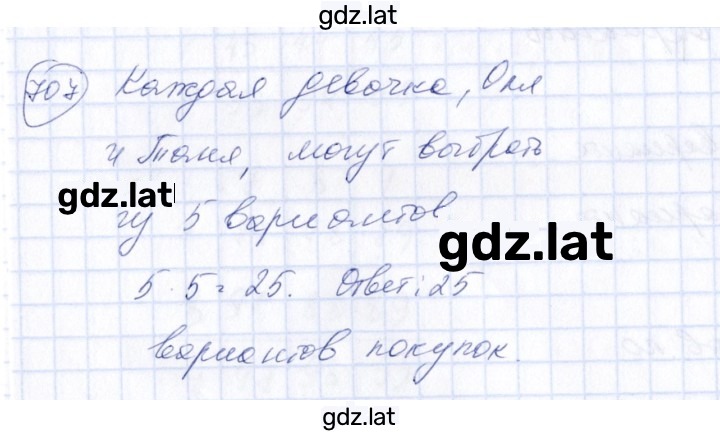 gdz.lat
707 Каждая девочка, Оля
и Таня, могут выбрать
gdz.lat
из 5 вариантов.
gdz.lat
5 · 5 = 25. Ответ: 25
вариантов покупок.
gdz.lat